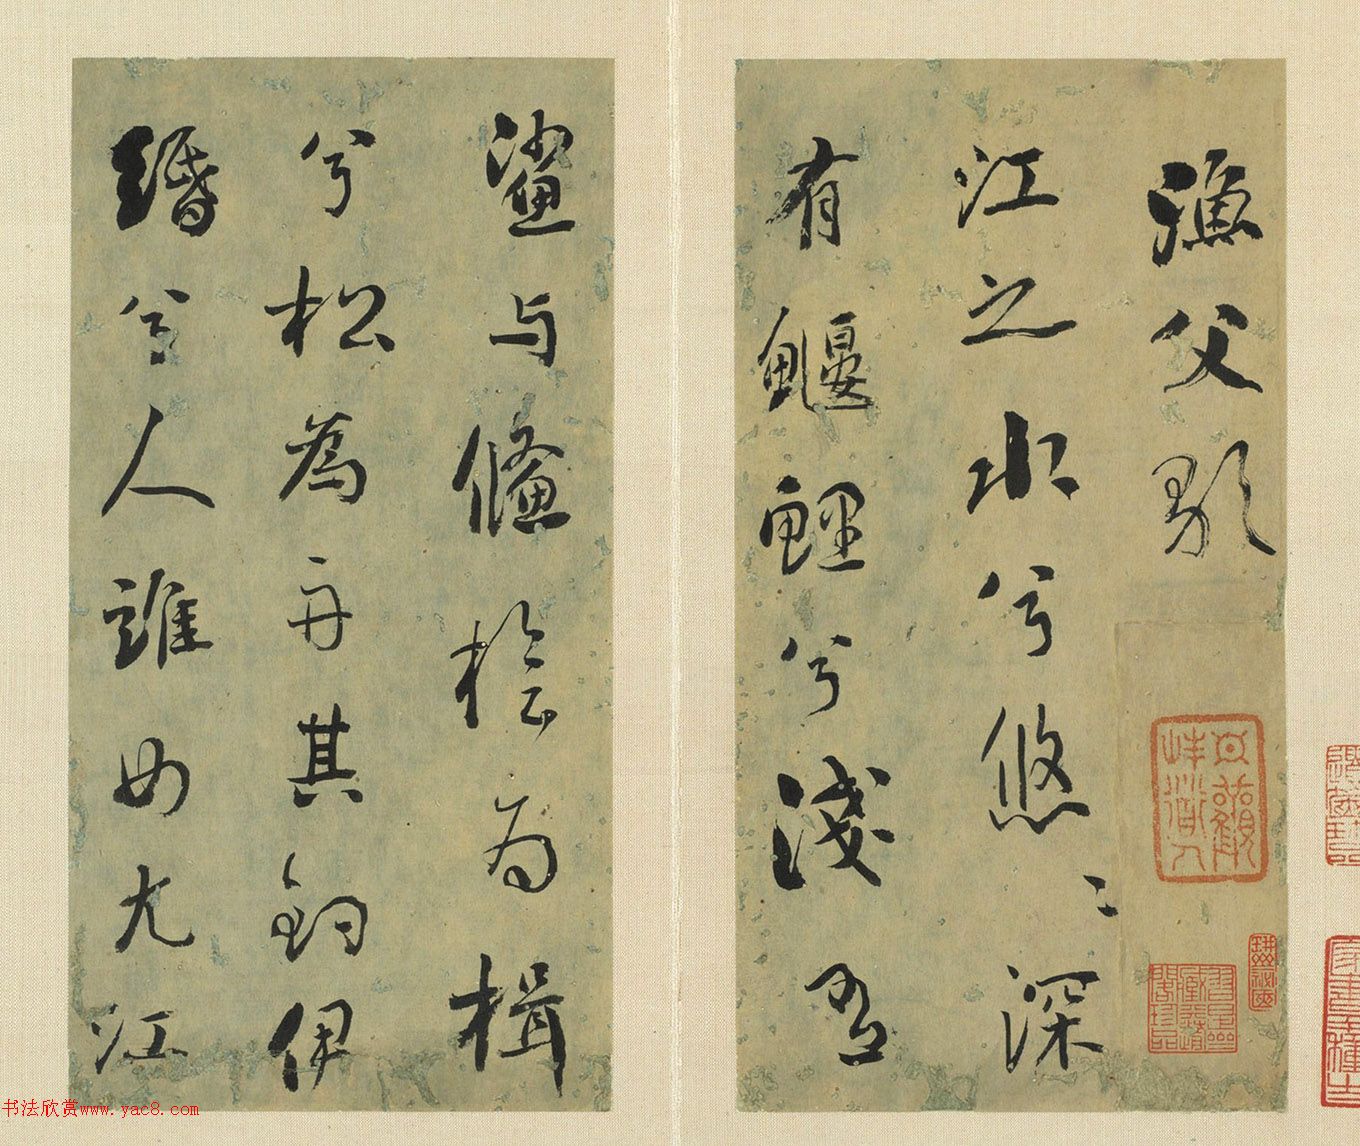 漁父歌
江之水兮悠〻深
有鰋鯉兮淺有
鯊与鯈檜为楫
兮松為舟其釣伊
緡兮人誰如尤江
书法欣赏www.yac8.com